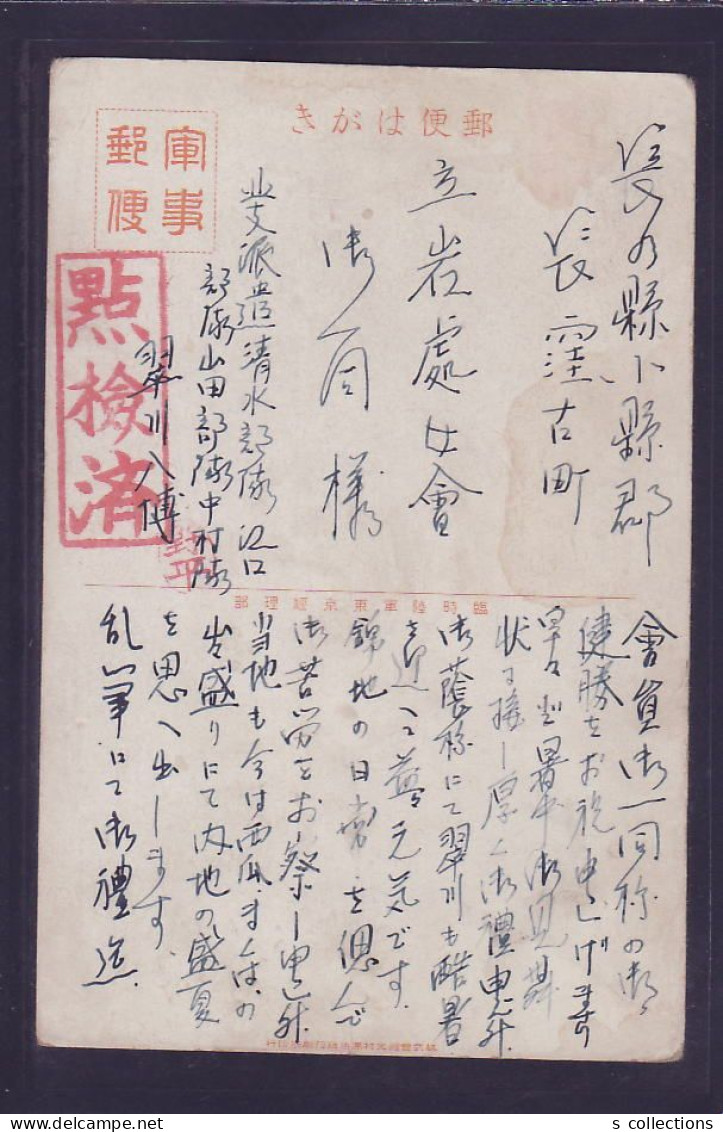 郵便はがき
軍事
郵便
點檢済
長野縣小縣郡
長窪古町
立岩處女會
御一同様
北支派遣清水部隊江口
部隊山田部隊中村隊
翠川八傳
臨時陸軍東京經理部
會員御一同様の御
健勝をお祝申上げます
早々暑中御見舞
状に接し厚く御禮申上升
御蔭様にて翠川も酷暑
を迎へ益々元気です
錦地の日常を偲んで
御苦労をお察し申上升
当地も今は西瓜まくはの
出盛りにて内地の盛夏
を思へ出します
乱筆にて御禮迄
s collections